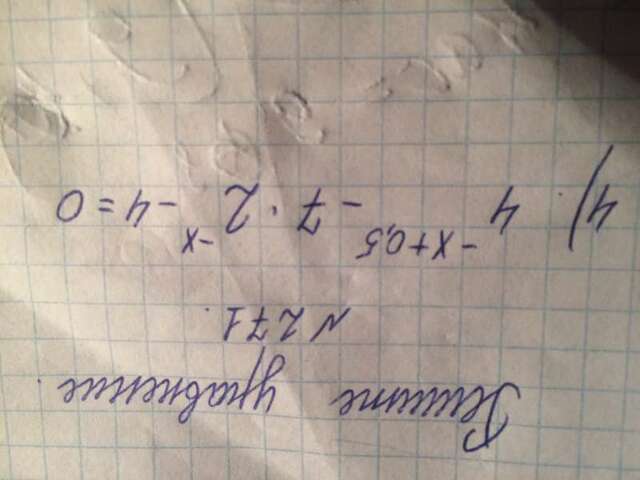 Решите уравнение.
№271.
4) 4^{-x+0,5} - 7 · 2^{-x} - 4 = 0